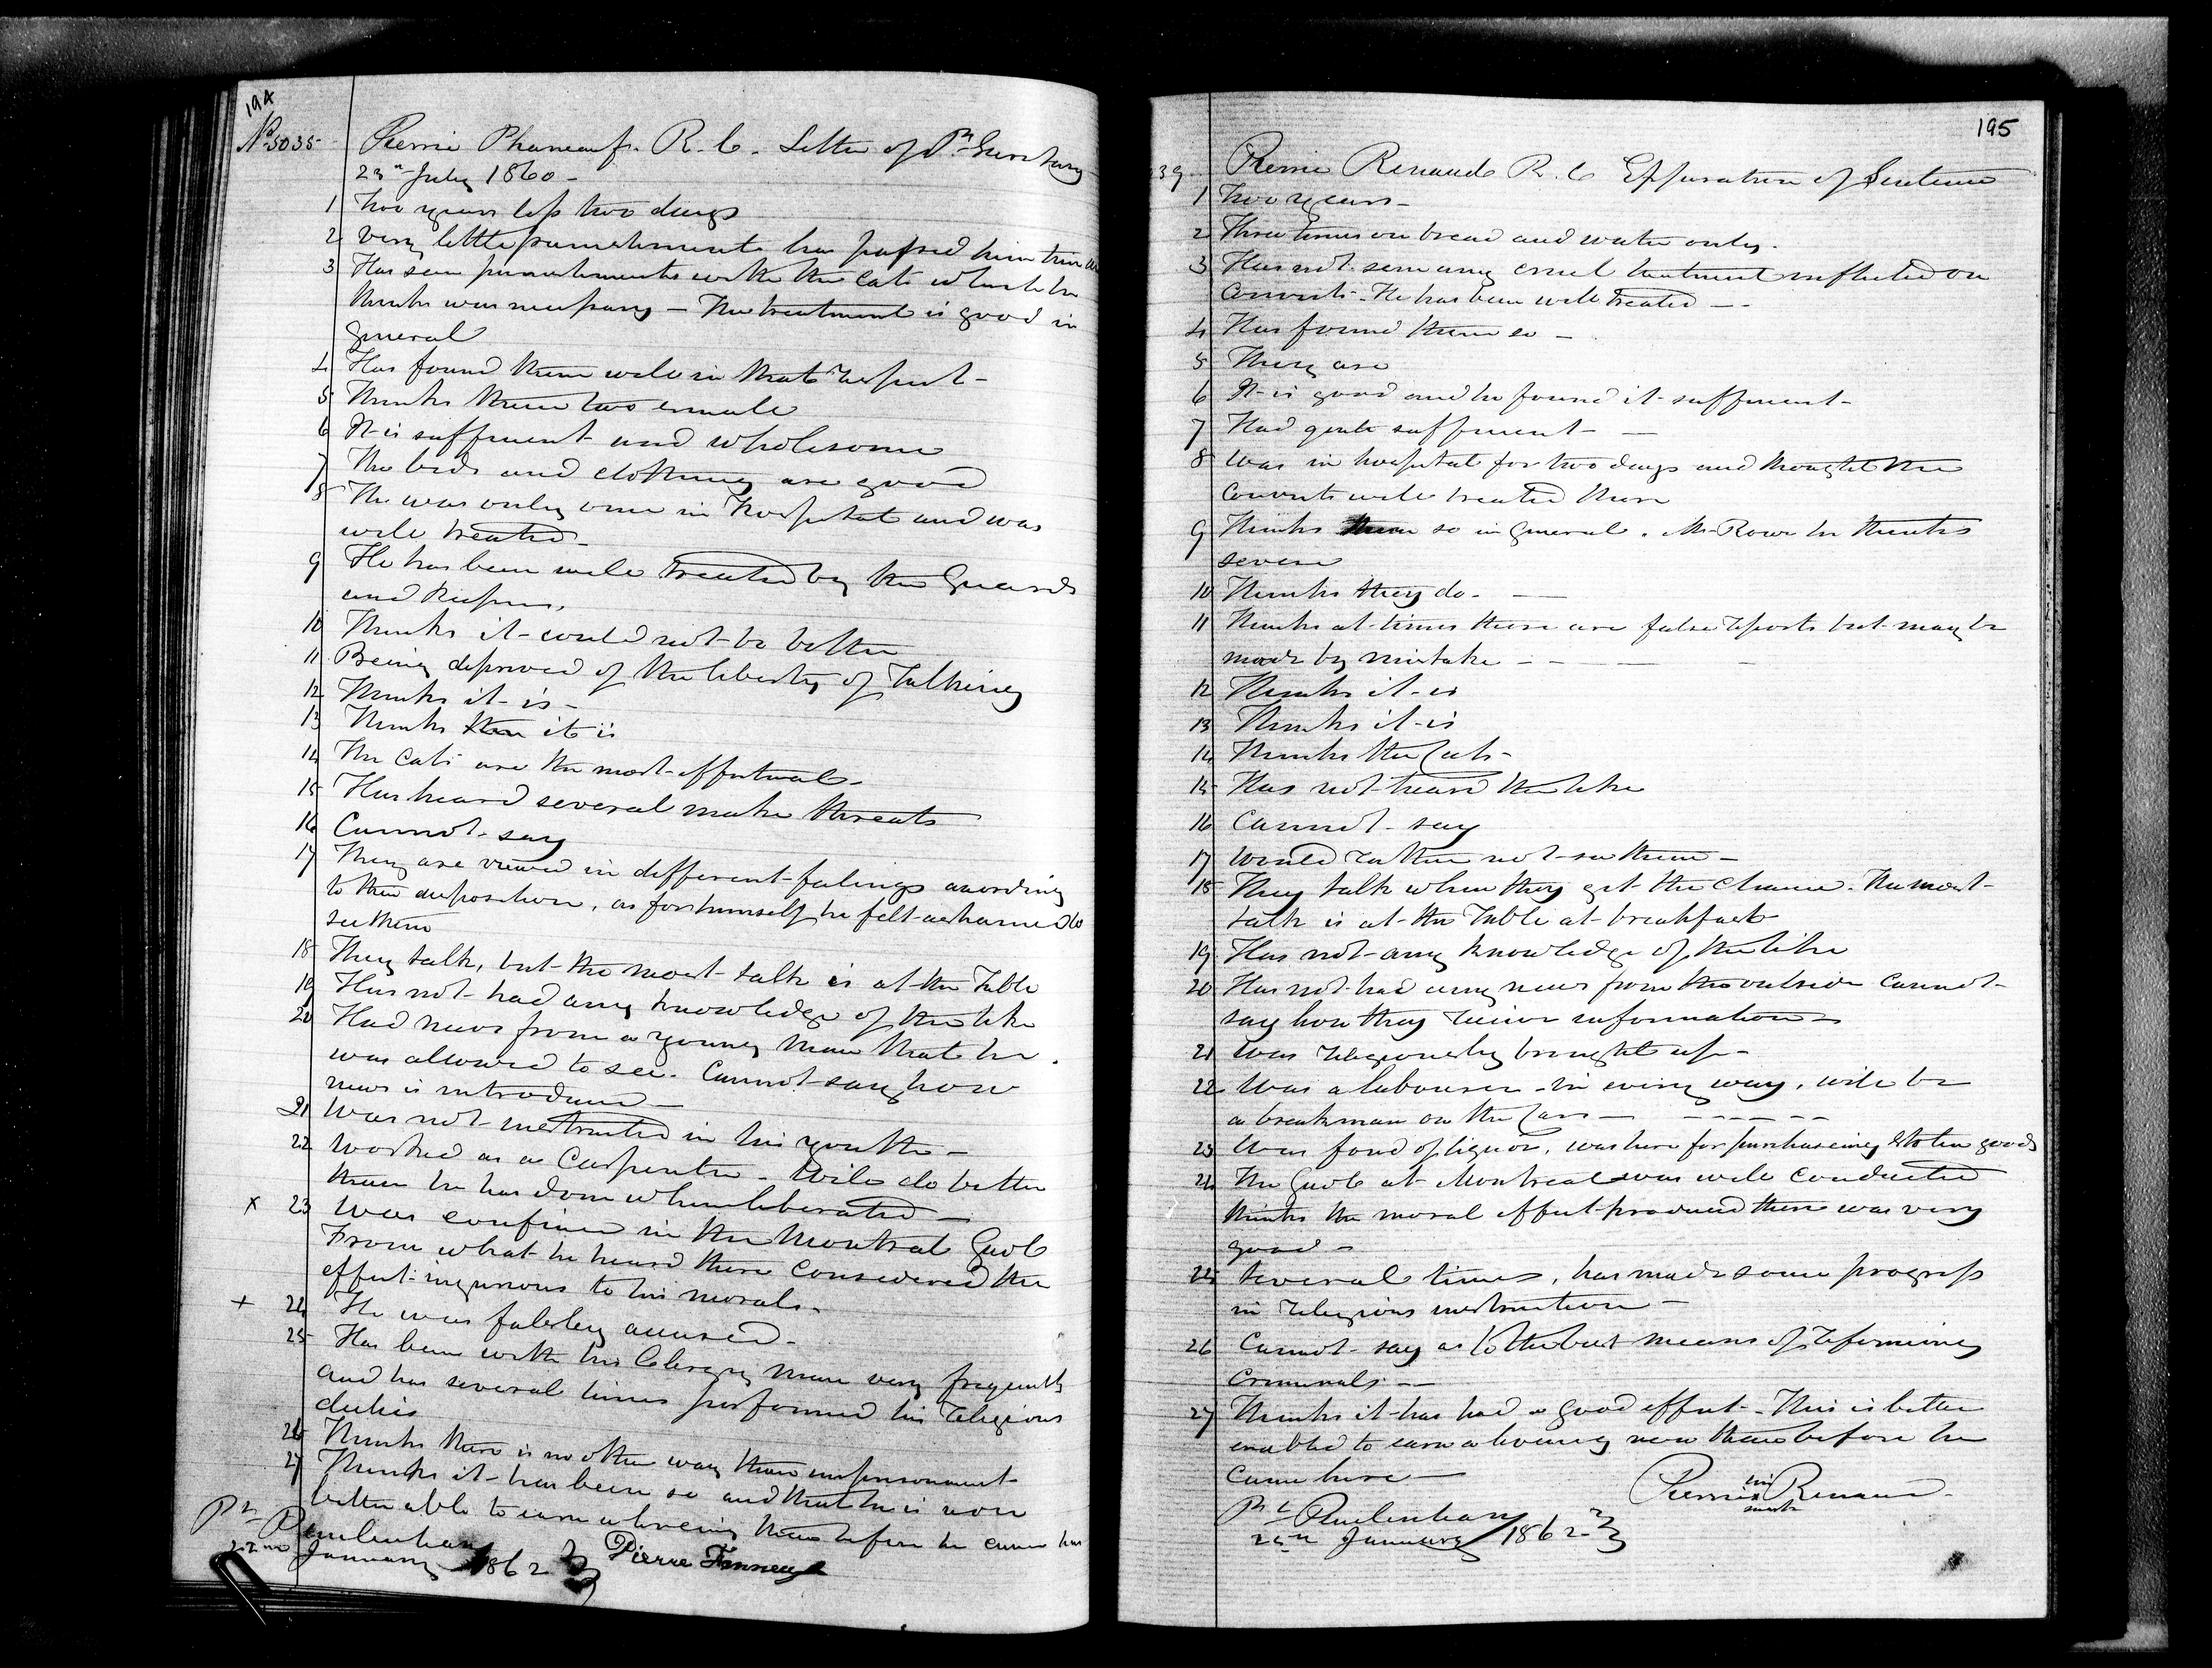 194
No 5035 Pierre Phaneuf. R. C. Letter of Pr. Secretary
23rd July 1860 -
1 Two years less two days
2 Very little punishments has passed him
3 Has seen punishments with the Cats which he
thinks was necessary - The treatment is good in
general
4 Has found them well in that respect -
5 Thinks them too small
6 It is sufficient and wholesome
7 The beds and clothing are good
8 He was only once in Hospital and was
well treated -
9 He has been well treated by the Guards
and Keepers.
10 Thinks it could not be better
11 Being deprived of the liberty of Talking
12 Thinks it is -
13 Thinks it is
14 The Cats are the most effectual -
15 Has heard several make threats
16 Cannot say
17 They are viewed in different feelings according
to their disposition, as for himself he felt ashamed to
see them
18 They talk, but the most talk is at the Table
19 Has not had any knowledge of the like
20 Had news from a young man that he
was allowed to see. Cannot say how
news is introduced -
21 Was not instructed in his youth -
22 Worked as a Carpenter. Will do better
than he has done when liberated -
x 23 Was confined in the Montreal Gaol
From what he heard there considered the
effect injurious to his morals -
+ 24 He was falsley accused -
25 Has been with his Clergy man very frequently
and has several times performed his religious
duties
26 Thinks there is no other way than imprisonment
27 Thinks it has been so and that he is now
better able to earn a living than before he came here
Pr. Penitentiary
22nd January 1862 Pierre
195
39 Pierre Renaud R. C. Expiration of Sentence
1 Two years -
2 Three times on bread and water only.
3 Has not seen any cruel treatment inflicted on
Convicts. He has been well treated - -
4 Has found them so -
5 They are
6 It is good and he found it sufficient -
7 Had quite sufficient - -
8 Was in hospital for two days and thought the
Convicts well treated there
9 Thinks so in General. Mr Rowe he thinks
severe
10 Thinks they do - -
11 Thinks at times there are false reports but may be
made by mistake - - - -
12 Thinks it is
13 Thinks it is
14 Thinks the Cats -
15 Has not heard the like
16 Cannot say
17 Would rather not see them -
18 They talk when they get the chance. The most
talk is at the Table at breakfast
19 Has not any knowledge of the like
20 Has not had any news from the outside Cannot
say how they receive information -
21 Was religiously brought up -
22 Was a labourer in every way, will be
a breakman on the Cars - - - - - -
23 Was fond of liquor, was here for purchaseing stolen goods
24 The Gaol at Montreal was well conducted
thinks the moral effect produced there was very
good -
25 Several times, has made some progress
in religious instruction -
26 Cannot say as to the best means of reforming
Criminals - -
27 Thinks it has had a good effect. This is better
enabled to earn a living now than before he
came here -
Pierre his x mark Renaud.
Pr. Penitentiary
25th January 1862